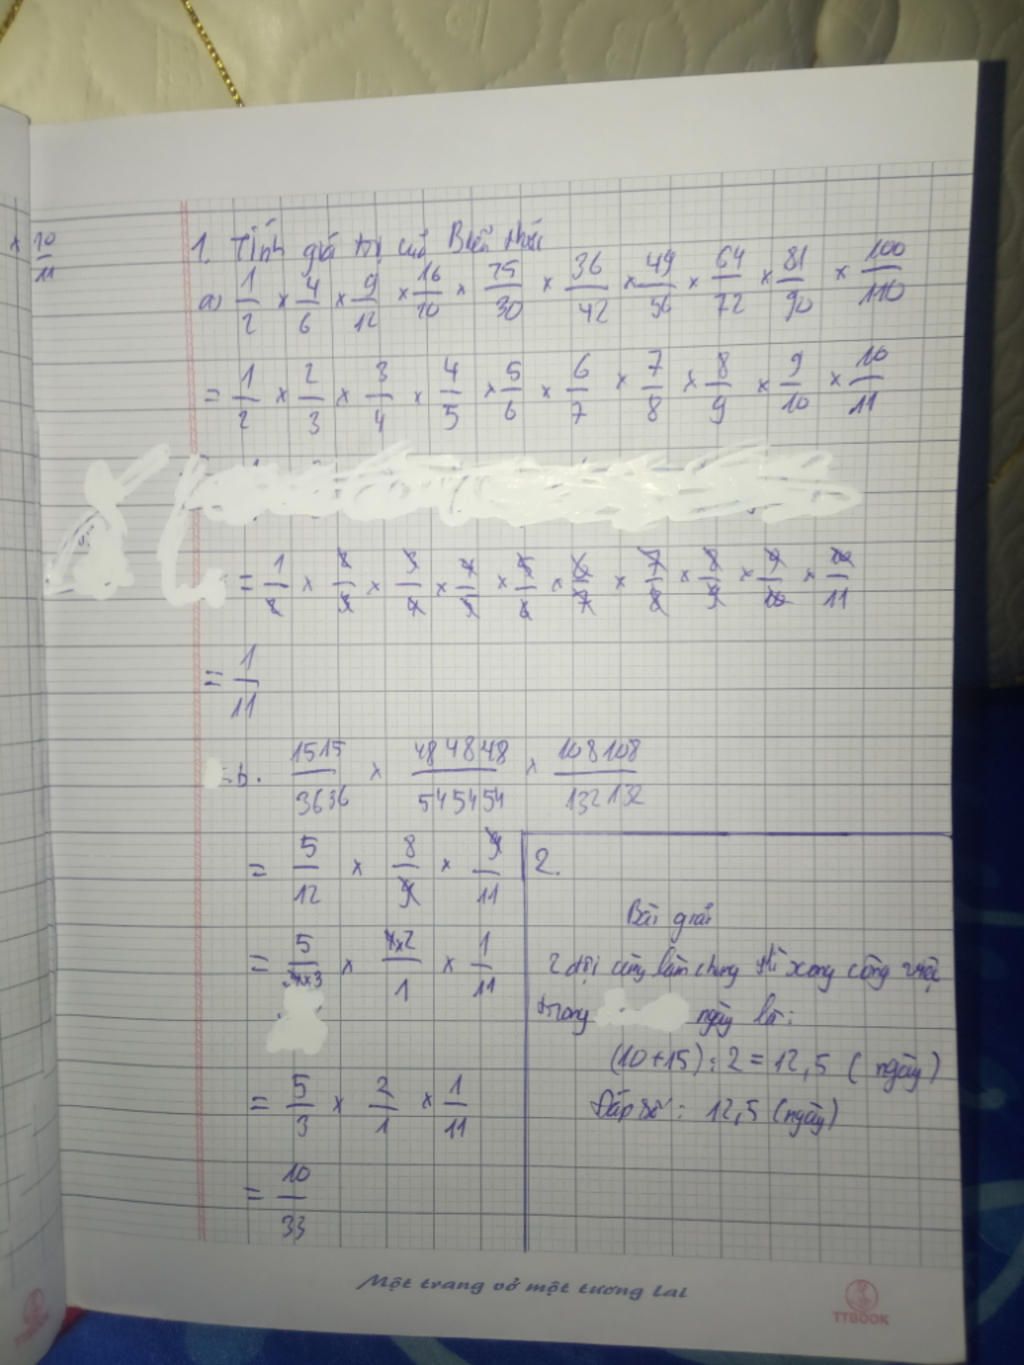 x 10/11
1. Tính giá trị của Biểu thức
a) 1/2 x 4/6 x 9/12 x 16/20 x 25/30 x 36/42 x 49/56 x 64/72 x 81/90 x 100/110
= 1/2 x 2/3 x 3/4 x 4/5 x 5/6 x 6/7 x 7/8 x 8/9 x 9/10 x 10/11
= 1/2 x 2/3 x 3/4 x 4/5 x 5/6 x 6/7 x 7/8 x 8/9 x 9/10 x 10/11
= 1/11
b. 1515/3636 x 484848/545454 x 108108/132132
= 5/12 x 8/9 x 9/11
= 5/4x3 x 4x2/1 x 1/11
= 5/3 x 2/1 x 1/11
= 10/33
2.
Bài giải
2 đội cùng làm chung thì xong công việc
trong ngày là:
(10+15) : 2 = 12,5 (ngày)
Đáp số : 12,5 (ngày)
Một trang vở một tương lai
TTBOOK